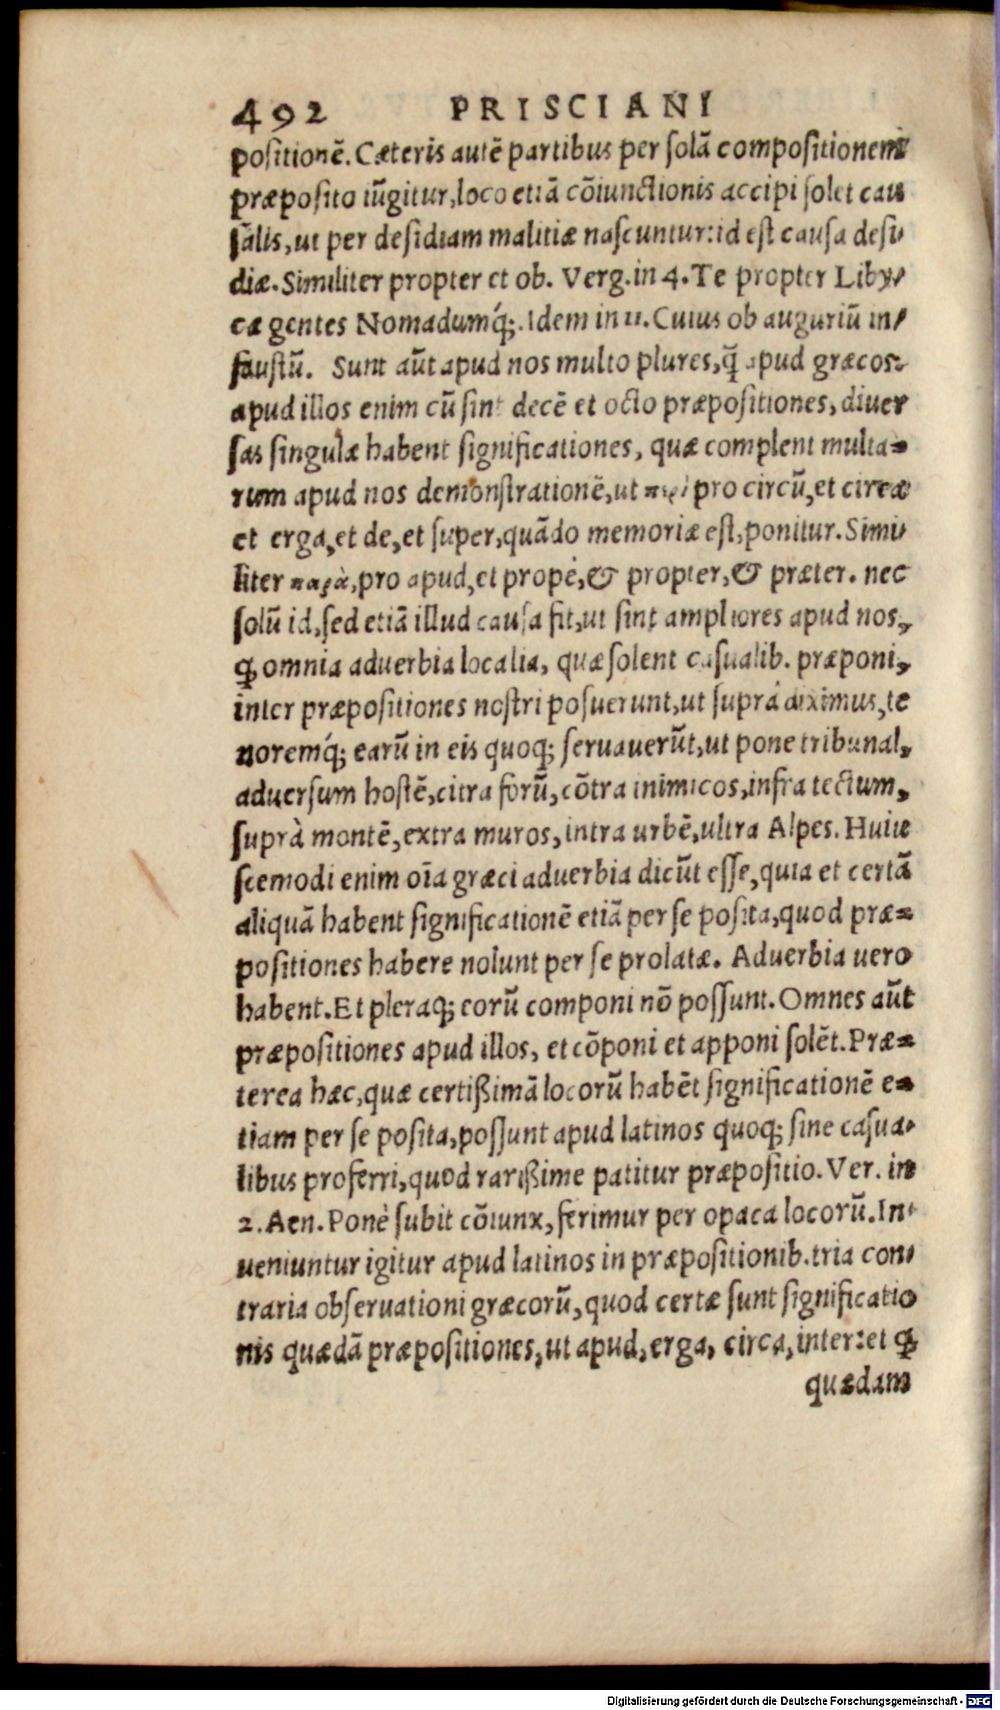 492 PRISCIANI
positionē. Cæteris autē partibus per solā compositionem
præposito iūgitur, loco etiā cōiunctionis accipi solet cau
salis, ut per desidiam malitiæ nascuntur: id est causa desi-
diæ. Similiter propter et ob. Verg. in 4. Te propter Liby-
cæ gentes Nomadumq́;. Idem in 11. Cuius ob auguriū in-
faustū. Sunt aūt apud nos multo plures, q̄ apud græcos.
apud illos enim cū sint decē et octo præpositiones, diver
sas singulæ habent significationes, quæ complent multa-
rum apud nos demonstrationē, ut περὶ pro circū, et circa
et erga, et de, et super, quādo memoriæ est, ponitur. Simi-
liter παρὰ, pro apud, et propè, & propter, & præter. nec
solū id, sed etiā illud causa fit, ut sint ampliores apud nos,
ꝙ omnia adverbia localia, quæ solent casualib. præponi,
inter præpositiones nostri posuerunt, ut suprà diximus, te
noremq́; earū in eis quoq; servaverūt, ut pone tribunal,
adversum hostē, citra forū, cōtra inimicos, infra tectum,
suprà montē, extra muros, intra urbē, ultra Alpes. Huiu
scemodi enim oīa græci adverbia dicūt esse, quia et certā
aliquā habent significationē etiā per se posita, quod præ-
positiones habere nolunt per se prolatæ. Adverbia vero
habent. Et pleraq; eorū componi nō possunt. Omnes aūt
præpositiones apud illos, et cōponi et apponi solēt. Præ-
terea hæc, quæ certißimā locorū habēt significationē e-
tiam per se posita, possunt apud latinos quoq; sine casua-
libus proferri, quod rarißime patitur præpositio. Ver. in
2. Aen. Ponè subit cōiunx, ferimur per opaca locorū. In-
veniuntur igitur apud latinos in præpositionib. tria con-
traria observationi græcorū, quod certæ sunt significatio
nis quædā præpositiones, ut apud, erga, circa, inter: et ꝙ
quædam
Digitalisierung gefördert durch die Deutsche Forschungsgemeinschaft - DFG